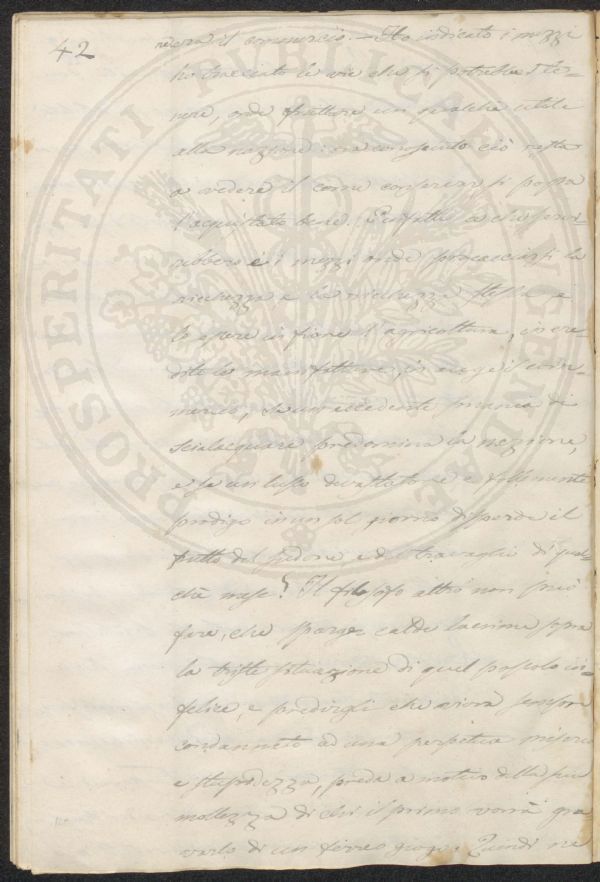 42
ricova il commercio. — Ho indicato i mezzi
ho tracciato le vie che si potrebbe te-
nere, onde frattare un qualche utile
alla nazione: ora conosciuto ciò resta
a vedere il come conservar si possa
l'acquistato bene. Perfatti a che servi-
rebbero i mezzi onde procacciarsi la
ricchezza e la ricchezza stessa e
lo essere in fiore l'agricoltura, in cre-
dito le manifatture, in auge il com-
mercio, se un eccedente smania di
scialacquare predomina la nazione,
e se un lusso devastatore e follemente
prodigo in un sol giorno disperde il
frutto del sudore, e dei travagli di qual-
che mese? Il filosofo altro non può
fare, che sparger calde lacrime sopra
la triste situazione di quel popolo in-
felice, e predirgli che vivrà sempre
condannato ad una perpetua miseria
e stupidezza, preda a motivo della sua
mollezza di chi il primo vorrà gra-
varlo di un ferreo giogo. Quindi ne
PROSPERITATI PUBLICAE AUGENDAE